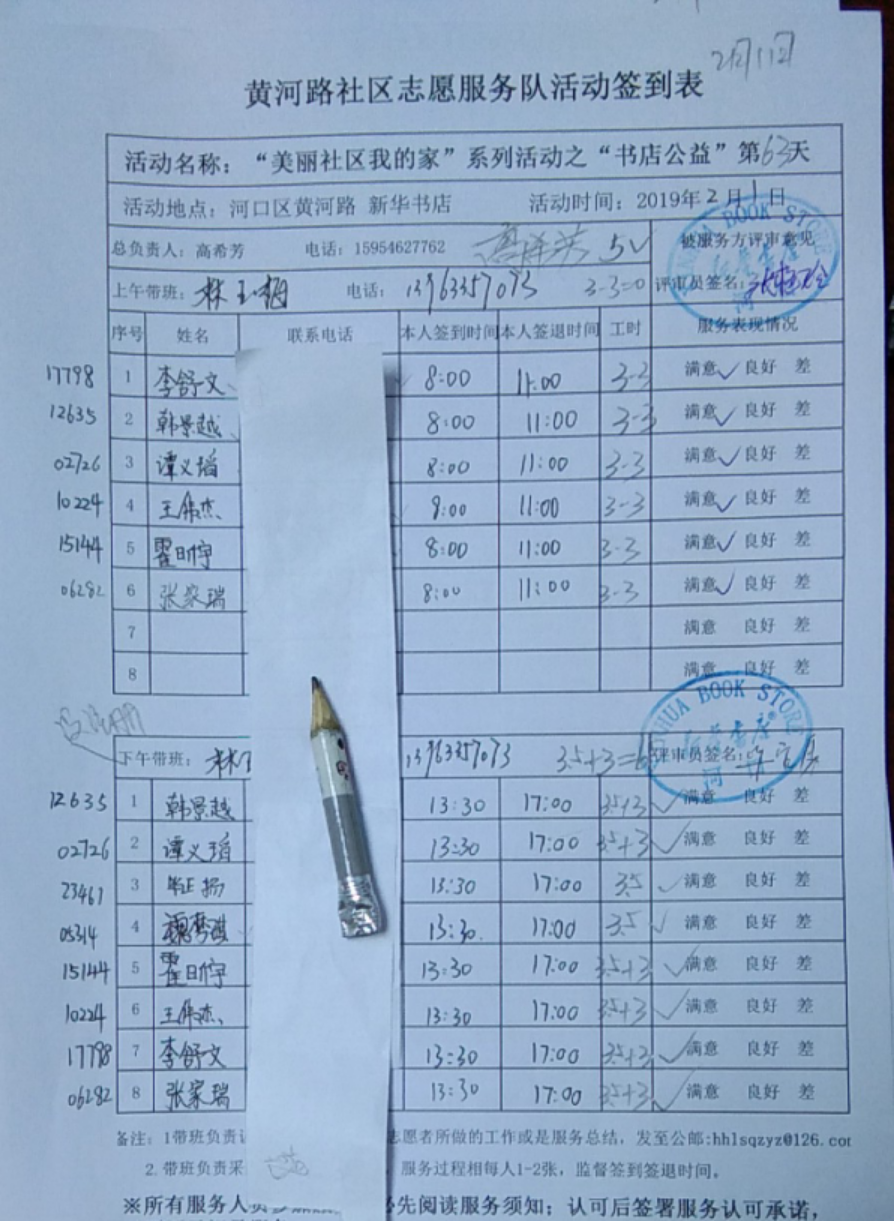 2月1日
黄河路社区志愿服务队活动签到表
活动名称：“美丽社区我的家”系列活动之“书店公益”第63天
活动地点：河口区黄河路 新华书店 活动时间：2019年2月1日
总负责人：高希芳 电话：15954627762 高希芳 5√ 被服务方评审意见
上午带班：林玉梅 电话：13963357093 3-3=0 评审员签名：
序号 姓名 联系电话 本人签到时间 本人签退时间 工时 服务表现情况
17798 1 李舒文 8:00 11:00 3-3 满意√ 良好 差
12635 2 韩景越 8:00 11:00 3-3 满意√ 良好 差
02726 3 谭义瑫 8:00 11:00 3-3 满意√ 良好 差
10224 4 王伟杰 8:00 11:00 3-3 满意√ 良好 差
15144 5 霍日宇 8:00 11:00 3-3 满意√ 良好 差
06282 6 张家瑞 8:00 11:00 3-3 满意√ 良好 差
7 满意 良好 差
8 满意 良好 差
XINHUA BOOK STORE
下午带班：林 13963357093 3.5+3= 评审员签名：
12635 1 韩景越 13:30 17:00 3.5+3 √满意 良好 差
02726 2 谭义瑫 13:30 17:00 3.5+3 √满意 良好 差
23461 3 毕正扬 13:30 17:00 3.5 √满意 良好 差
05314 4 魏梦琪 13:30 17:00 3.5 √满意 良好 差
15144 5 霍日宇 13:30 17:00 3.5+3 √满意 良好 差
10224 6 王伟杰 13:30 17:00 3.5+3 √满意 良好 差
17798 7 李舒文 13:30 17:00 3.5+3 √满意 良好 差
06282 8 张家瑞 13:30 17:00 3.5+3 √满意 良好 差
备注：1带班负责 志愿者所做的工作或是服务总结，发至公邮:hhlsqzyz@126.com
2.带班负责采 ，服务过程相每人1-2张，监督签到签退时间。
※所有服务人员 必先阅读服务须知；认可后签署服务认可承诺，